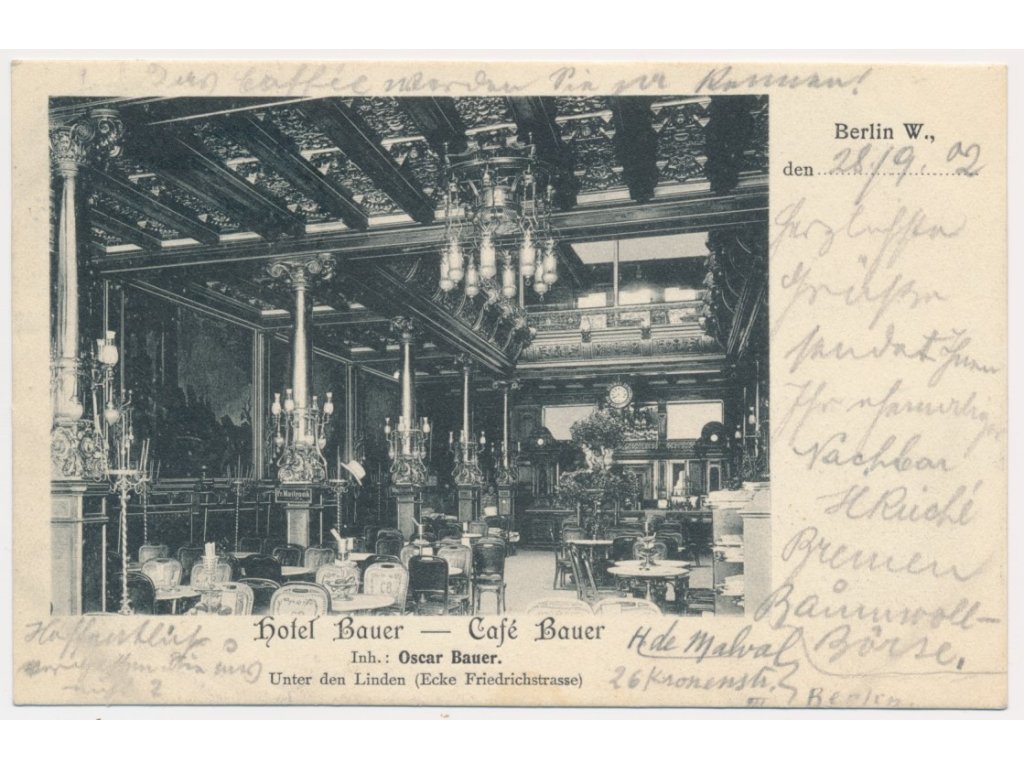 Das Caffée werden Sie ja kennen!
Berlin W.,
den 28/9. 02
Herzlichste
Grüsse
sendet Ihnen
Ihr ehemaliger
Nachbar
H Ruché
Bremen
Baumwoll-
Börse.
Hotel Bauer — Café Bauer
Inh.: Oscar Bauer.
Unter den Linden (Ecke Friedrichstrasse)
Hoffentlich
vergessen Sie uns
nicht?
H de Malval
26 Kronenstr.
III Berlin.